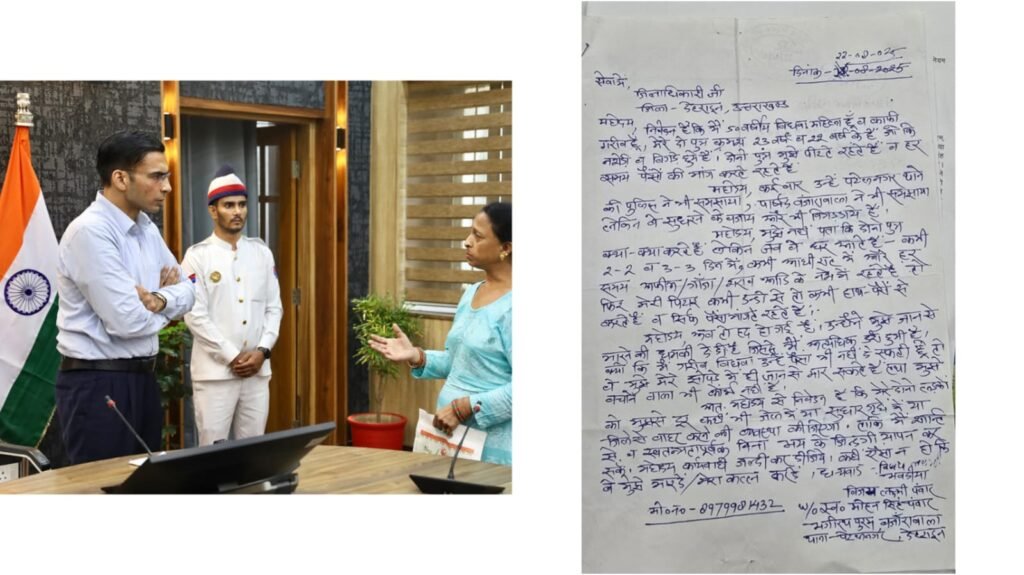 22-08-025
दिनांक - 22-08-2025
सेवामें,
जिलाधिकारी जी
जिला - देहरादून, उत्तराखण्ड
महोदय, निवेदन है कि मैं 50 वर्षीय विधवा महिला हूँ व काफी
गरीब हूँ, मेरे दो पुत्र क्रमशः 23 वर्ष व 22 वर्ष के हैं जो कि
नशेडी व बिगडे हुये हैं। दोनों पुत्र मुझे पीटते रहते हैं व हर
समय पैसों की मांग करते रहते हैं
महोदय, कई बार उन्हें पटेलनगर थाने
की पुलिस ने भी समझाया, पार्षद बंजारावाला ने भी समझाया
लेकिन वे सुधरने के बजाय और भी बिगड़
महोदय, मुझे नहीं पता कि दोनों पुत्र
क्या-क्या करते हैं लेकिन जब वे घर आते हैं - कभी
2-2 व 3-3 दिन में, कभी आधी रात में और हर
समय अफीम/गांजा/शराब आदि के नशे में रहते हैं तो
फिर मेरी पिटाई कभी डन्डों से तो कभी हाथ-पैरों से
करते हैं व सिर्फ पैसा मांगते रहते हैं।
महोदय अब तो हद हो गई है, उन्होंने मुझे जान से
मारने की धमकी दे दी है जिससे मैं अत्यधिक डरी हुयी हूँ,
क्यों कि मैं गरीब विधवा उन्हें पैसा भी नहीं दे सकती हूँ तो
वे मुझे मेरे झोपडे में ही जान से मार सकते हैं तथा मुझे
बचाने वाला भी कोई नहीं है।
अतः महोदय से निवेदन है कि मेरे दोनों लड़कों
को मुझसे दूर कहीं भी जेल में या सुधार गृह में या
जिले से बाहर करने की व्यवस्था कीजिएगा ताकि मैं शान्ति
से, व स्वतन्त्रतापूर्वक बिना भय के जिंदगी यापन कर
सकूं, महोदय कार्यवाही जल्दी कर दीजिये कहीं ऐसा न हो कि
वे मुझे मारदें/मेरा कत्ल करदें, धन्यवाद -
विजय लक्ष्मी पंवार
W/o स्व० मोहन सिंह पंवार
भगीरथ पुरम, बंजारावाला
थाना - पटेलनगर, देहरादून
मो०न० - 8979981432